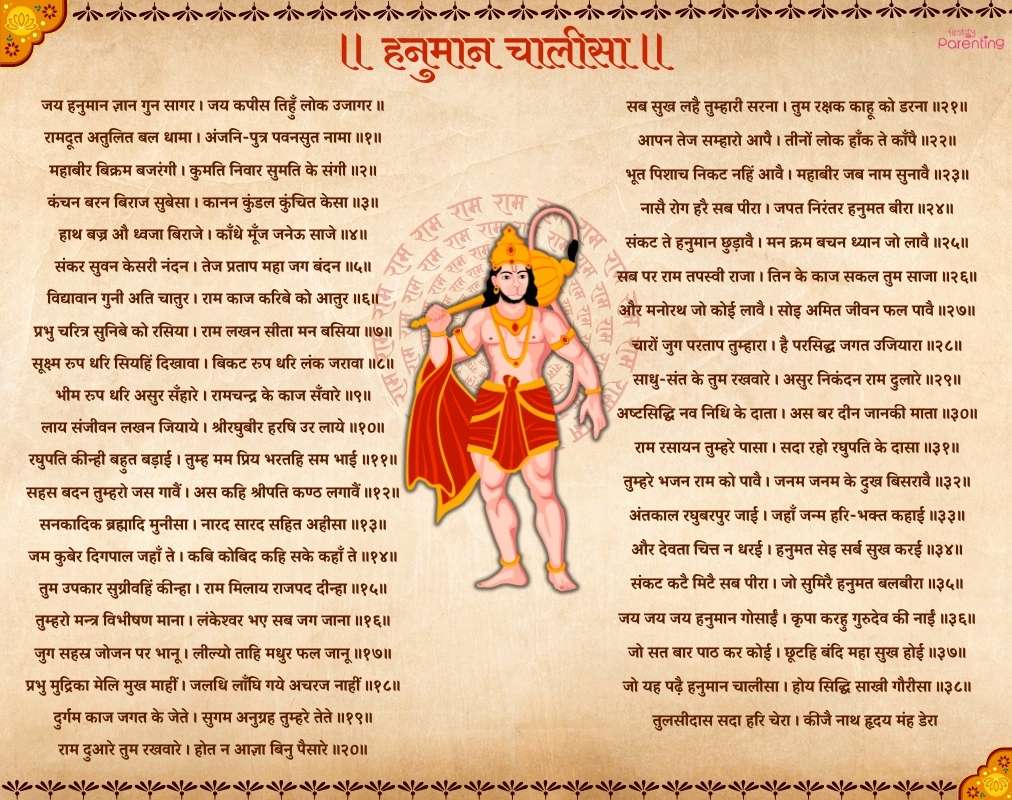 ॥ हनुमान चालीसा ॥
firstcry
Parenting
जय हनुमान ज्ञान गुन सागर । जय कपीस तिहुँ लोक उजागर ॥
रामदूत अतुलित बल धामा । अंजनि-पुत्र पवनसुत नामा ॥१॥
महाबीर बिक्रम बजरंगी । कुमति निवार सुमति के संगी ॥२॥
कंचन बरन बिराज सुबेसा । कानन कुंडल कुंचित केसा ॥३॥
हाथ बज्र औ ध्वजा बिराजे । काँधे मूँज जनेऊ साजे ॥४॥
संकर सुवन केसरी नंदन । तेज प्रताप महा जग बंदन ॥५॥
विद्यावान गुनी अति चातुर । राम काज करिबे को आतुर ॥६॥
प्रभु चरित्र सुनिबे को रसिया । राम लखन सीता मन बसिया ॥७॥
सूक्ष्म रुप धरि सियहिं दिखावा । बिकट रुप धरि लंक जरावा ॥८॥
भीम रुप धरि असुर सँहारे । रामचन्द्र के काज सँवारे ॥९॥
लाय संजीवन लखन जियाये । श्रीरघुबीर हरषि उर लाये ॥१०॥
रघुपति कीन्ही बहुत बड़ाई । तुम्ह मम प्रिय भरतहि सम भाई ॥११॥
सहस बदन तुम्हरो जस गावैं । अस कहि श्रीपति कण्ठ लगावैं ॥१२॥
सनकादिक ब्रह्मादि मुनीसा । नारद सारद सहित अहीसा ॥१३॥
जम कुबेर दिगपाल जहाँ ते । कबि कोबिद कहि सके कहाँ ते ॥१४॥
तुम उपकार सुग्रीवहिं कीन्हा । राम मिलाय राजपद दीन्हा ॥१५॥
तुम्हरो मन्त्र विभीषण माना । लंकेश्वर भए सब जग जाना ॥१६॥
जुग सहस्र जोजन पर भानू । लील्यो ताहि मधुर फल जानू ॥१७॥
प्रभु मुद्रिका मेलि मुख माहीं । जलधि लाँघि गये अचरज नाहीं ॥१८॥
दुर्गम काज जगत के जेते । सुगम अनुग्रह तुम्हरे तेते ॥१९॥
राम दुआरे तुम रखवारे । होत न आज्ञा बिनु पैसारे ॥२०॥
सब सुख लहै तुम्हारी सरना । तुम रक्षक काहू को डरना ॥२१॥
आपन तेज सम्हारो आपै । तीनों लोक हाँक ते काँपै ॥२२॥
भूत पिशाच निकट नहिं आवै । महाबीर जब नाम सुनावै ॥२३॥
नासै रोग हरै सब पीरा । जपत निरंतर हनुमत बीरा ॥२४॥
संकट ते हनुमान छुड़ावै । मन क्रम बचन ध्यान जो लावै ॥२५॥
सब पर राम तपस्वी राजा । तिन के काज सकल तुम साजा ॥२६॥
और मनोरथ जो कोई लावै । सोइ अमित जीवन फल पावै ॥२७॥
चारों जुग परताप तुम्हारा । है परसिद्ध जगत उजियारा ॥२८॥
साधु-संत के तुम रखवारे । असुर निकंदन राम दुलारे ॥२९॥
अष्टसिद्धि नव निधि के दाता । अस बर दीन जानकी माता ॥३०॥
राम रसायन तुम्हरे पासा । सदा रहो रघुपति के दासा ॥३१॥
तुम्हरे भजन राम को पावै । जनम जनम के दुख बिसरावै ॥३२॥
अंतकाल रघुबरपुर जाई । जहाँ जन्म हरि-भक्त कहाई ॥३३॥
और देवता चित्त न धरई । हनुमत सेइ सर्ब सुख करई ॥३४॥
संकट कटै मिटै सब पीरा । जो सुमिरै हनुमत बलबीरा ॥३५॥
जय जय जय हनुमान गोसाईं । कृपा करहु गुरुदेव की नाईं ॥३६॥
जो सत बार पाठ कर कोई । छूटहि बंदि महा सुख होई ॥३७॥
जो यह पढ़ै हनुमान चालीसा । होय सिद्धि साखी गौरीसा ॥३८॥
तुलसीदास सदा हरि चेरा । कीजै नाथ हृदय मंह डेरा
राम राम राम राम राम राम